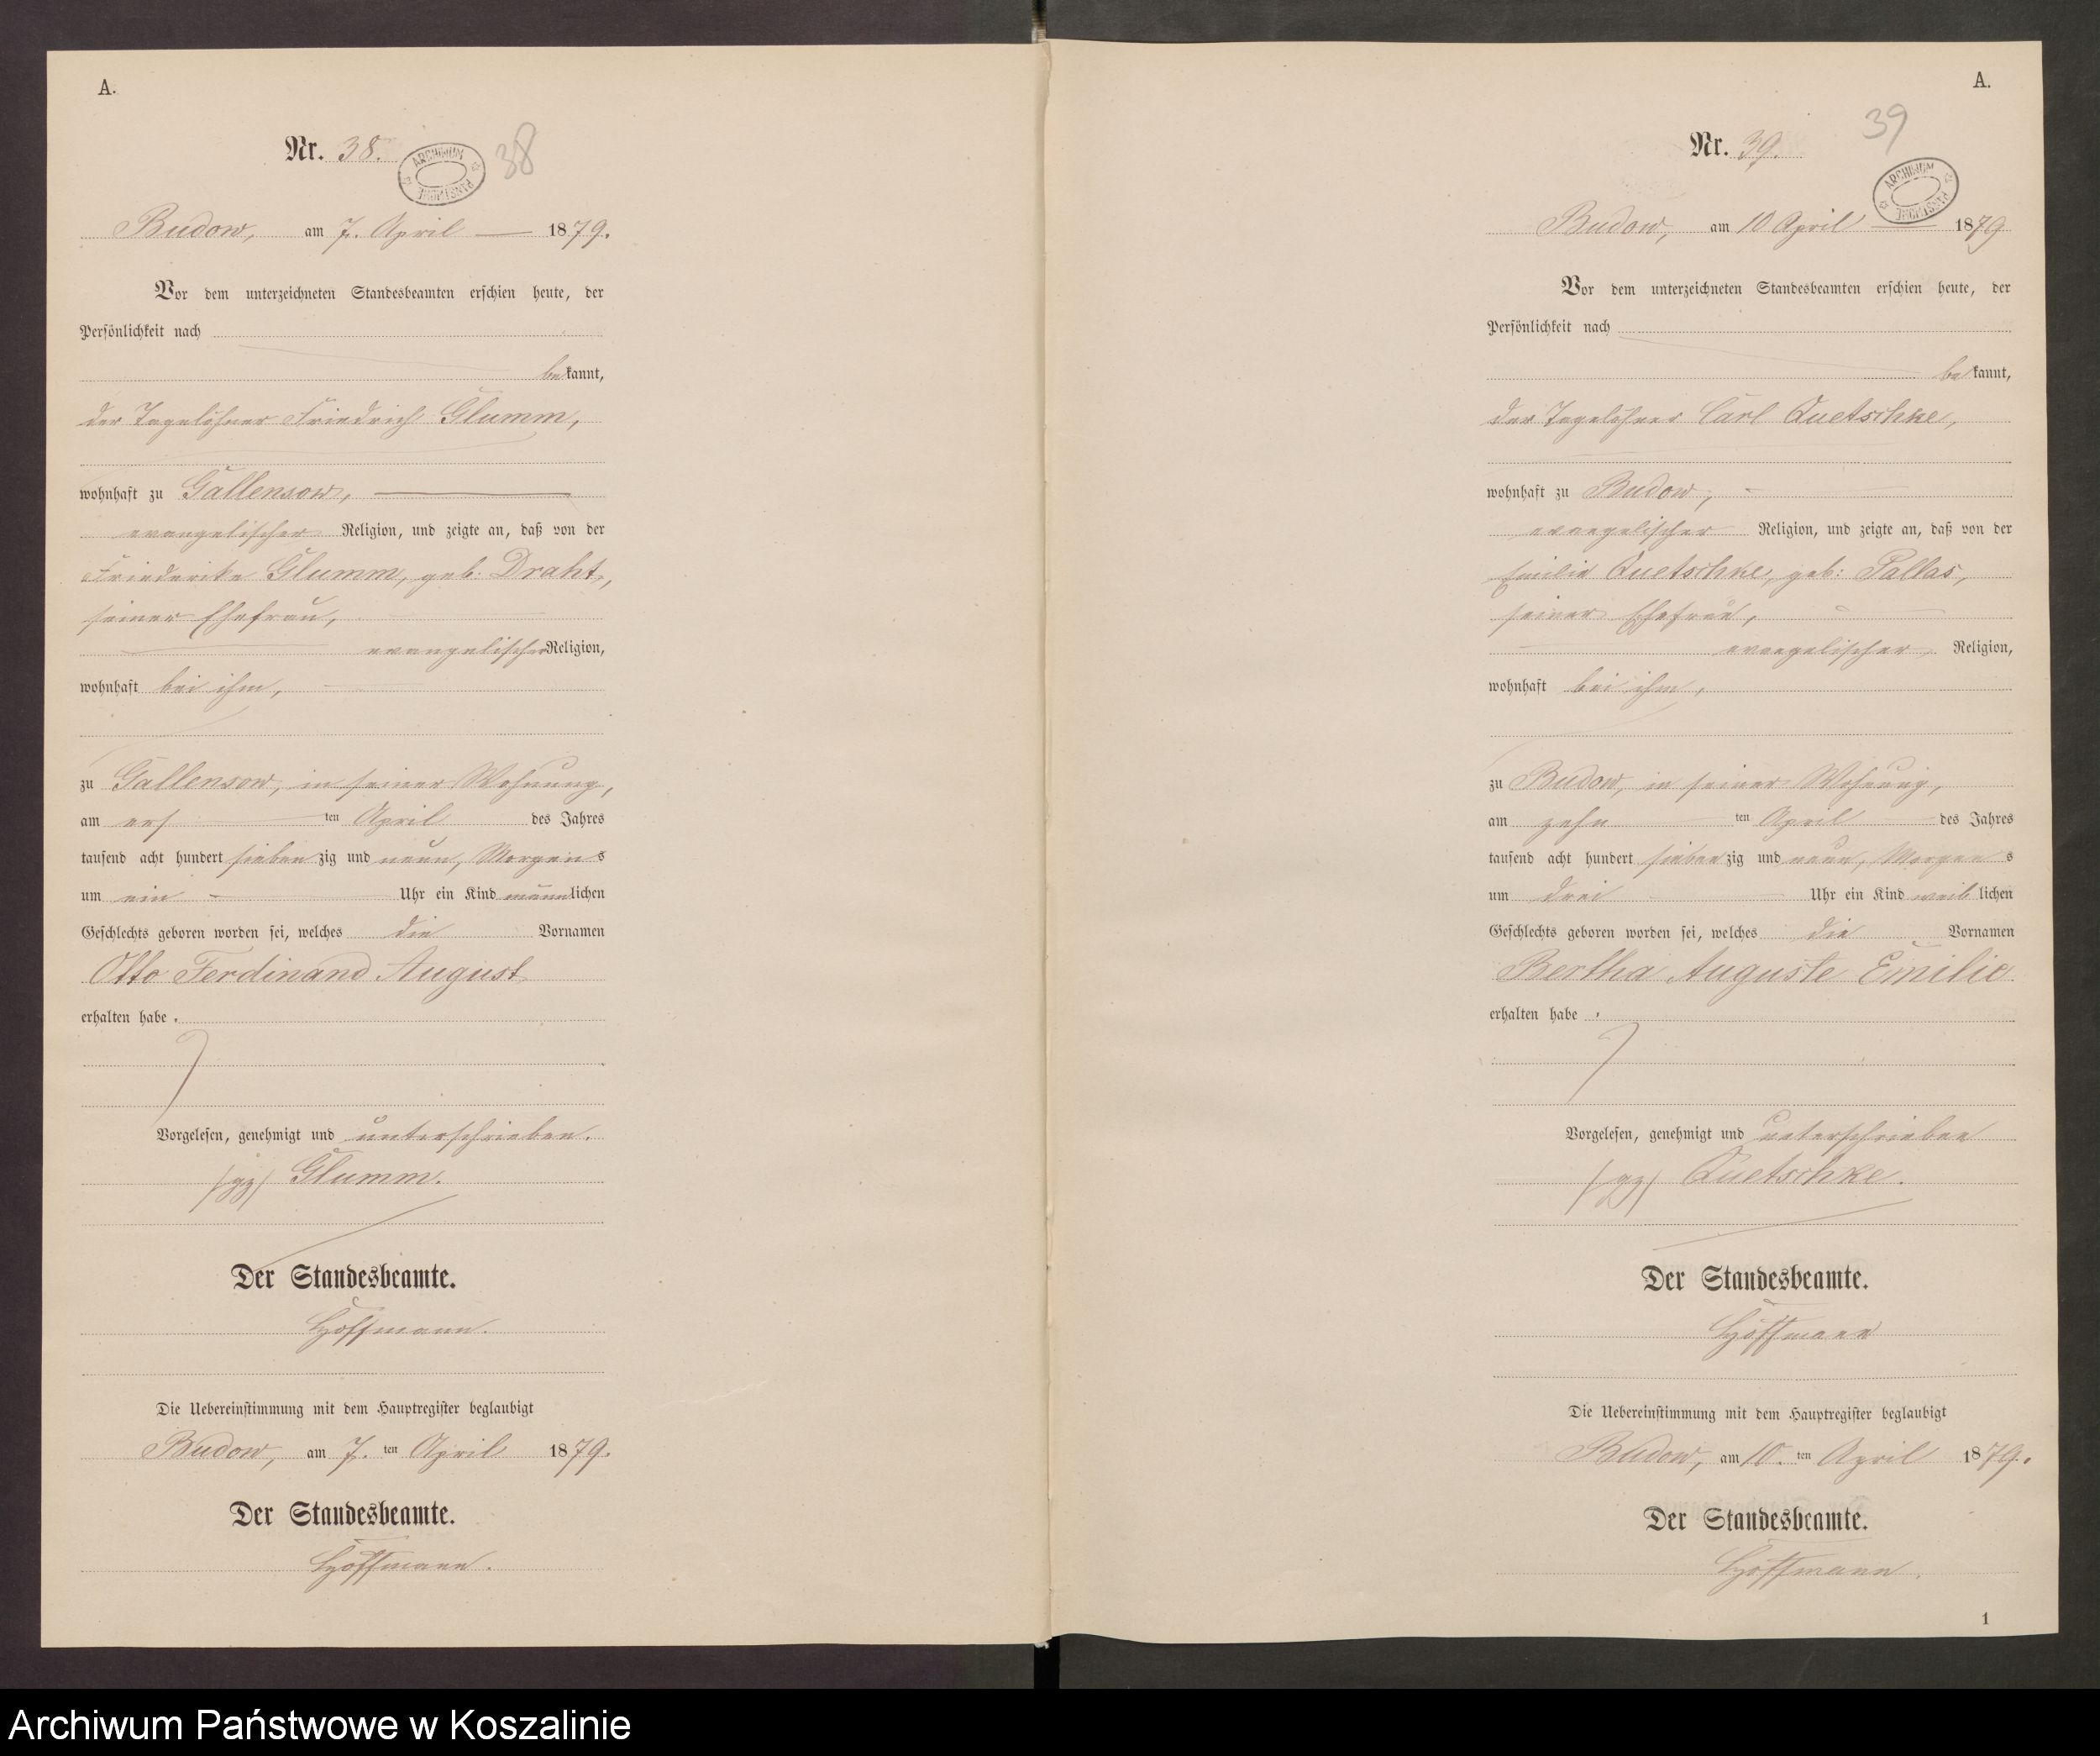 A.
Nr. 38.
ARCHIWUM PAŃSTWOWE
38
Budow, am 7. April 1879.
Vor dem unterzeichneten Standesbeamten erschien heute, der
Persönlichkeit nach
bekannt,
der Tagelöhner Friedrich Glumm,
wohnhaft zu Gallensow,
evangelischer Religion, und zeigte an, daß von der
Friederike Glumm, geb. Draht,
seiner Ehefrau,
evangelischer Religion,
wohnhaft bei ihm,
zu Gallensow, in seiner Wohnung,
am ers ten April des Jahres
tausend acht hundert siebenzig und neun, Morgens
um ein Uhr ein Kind männlichen
Geschlechts geboren worden sei, welches die Vornamen
Otto Ferdinand August
erhalten habe.
Vorgelesen, genehmigt und unterschrieben.
(gz) Glumm.
Der Standesbeamte.
Hoffmann.
Die Uebereinstimmung mit dem Hauptregister beglaubigt
Budow, am 7. ten April 1879.
Der Standesbeamte.
Hoffmann.
A.
39
Nr. 39.
ARCHIWUM PAŃSTWOWE
Budow, am 10 April 1879
Vor dem unterzeichneten Standesbeamten erschien heute, der
Persönlichkeit nach
bekannt,
der Tagelöhner Carl Quetschke,
wohnhaft zu Budow,
evangelischer Religion, und zeigte an, daß von der
Emilie Quetschke, geb: Pallas,
seiner Ehefrau,
evangelischer Religion,
wohnhaft bei ihm,
zu Budow, in seiner Wohnung,
am zehn ten April des Jahres
tausend acht hundert siebenzig und neun, Morgens
um drei Uhr ein Kind weiblichen
Geschlechts geboren worden sei, welches die Vornamen
Bertha Auguste Emilie
erhalten habe.
Vorgelesen, genehmigt und unterschrieben
(gz) Quetschke.
Der Standesbeamte.
Hoffmann
Die Uebereinstimmung mit dem Hauptregister beglaubigt
Budow, am 10. ten April 1879.
Der Standesbeamte.
Hoffmann.
1
Archiwum Państwowe w Koszalinie